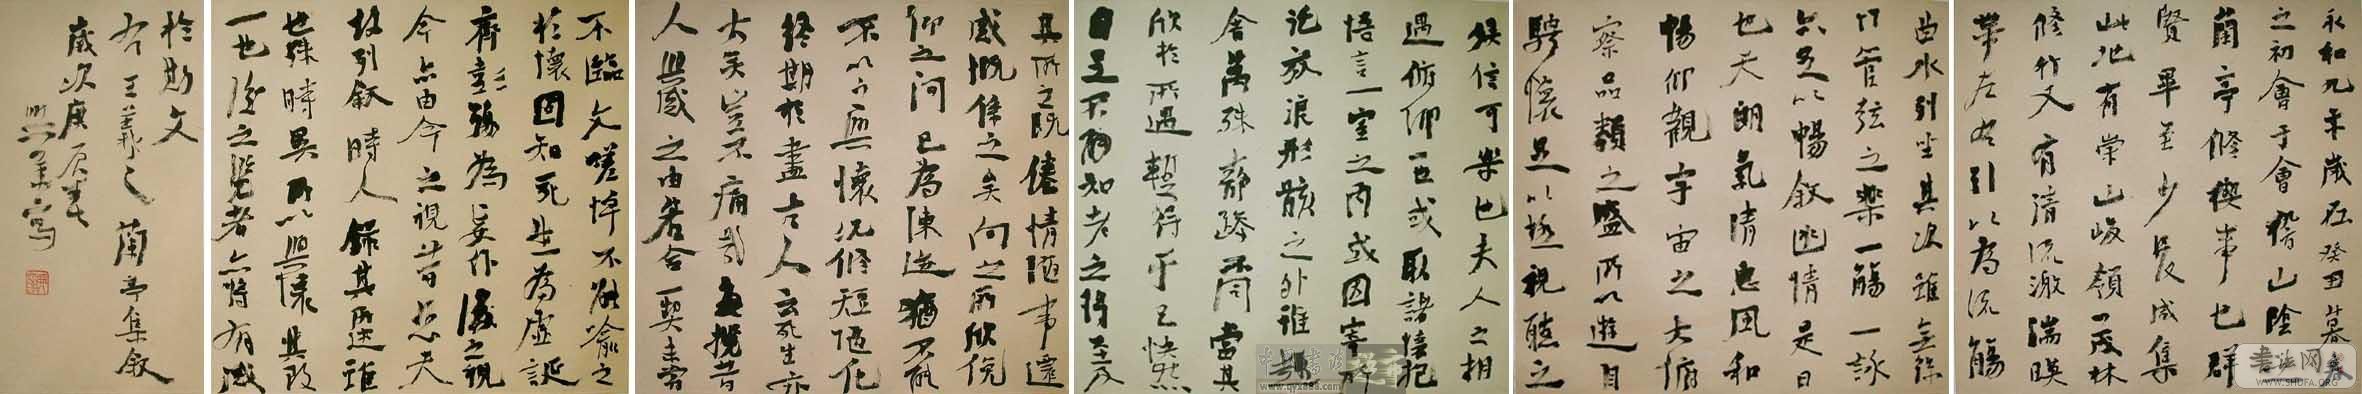 永和九年歲在癸丑暮春
之初會于會稽山陰
蘭亭修禊事也群
賢畢至少長咸集
此地有崇山峻領茂林
修竹又有清流激湍暎
帶左右引以為流觴
曲水列坐其次雖無絲
竹管弦之樂一觴一詠
亦足以暢敘幽情是日
也天朗氣清惠風和
暢仰觀宇宙之大俯
察品類之盛所以遊目
騁懷足以極視聽之
娛信可樂也夫人之相
遇俯仰一世或取諸懷抱
悟言一室之內或因寄所
託放浪形骸之外雖趣
舍萬殊靜躁不同當其
欣於所遇暫得於己快然
自足不知老之將至及
其所之既倦情隨事遷
感慨係之矣向之所欣俛
仰之間已為陳迹猶不能
不以之興懷況修短隨化
終期於盡古人云死生亦
大矣豈不痛哉每攬昔
人興感之由若合一契未嘗
不臨文嗟悼不能喻之
於懷固知死生為虛誕
齊彭殤為妄作後之視
今亦由今之視昔悲夫
故列敘時人錄其所述雖
世殊時異所以興懷其致
一也後之覽者亦將有感
於斯文
右王羲之蘭亭集敘
歲次庚辰春
寫
书法网
WWW.SHUFA.ORG